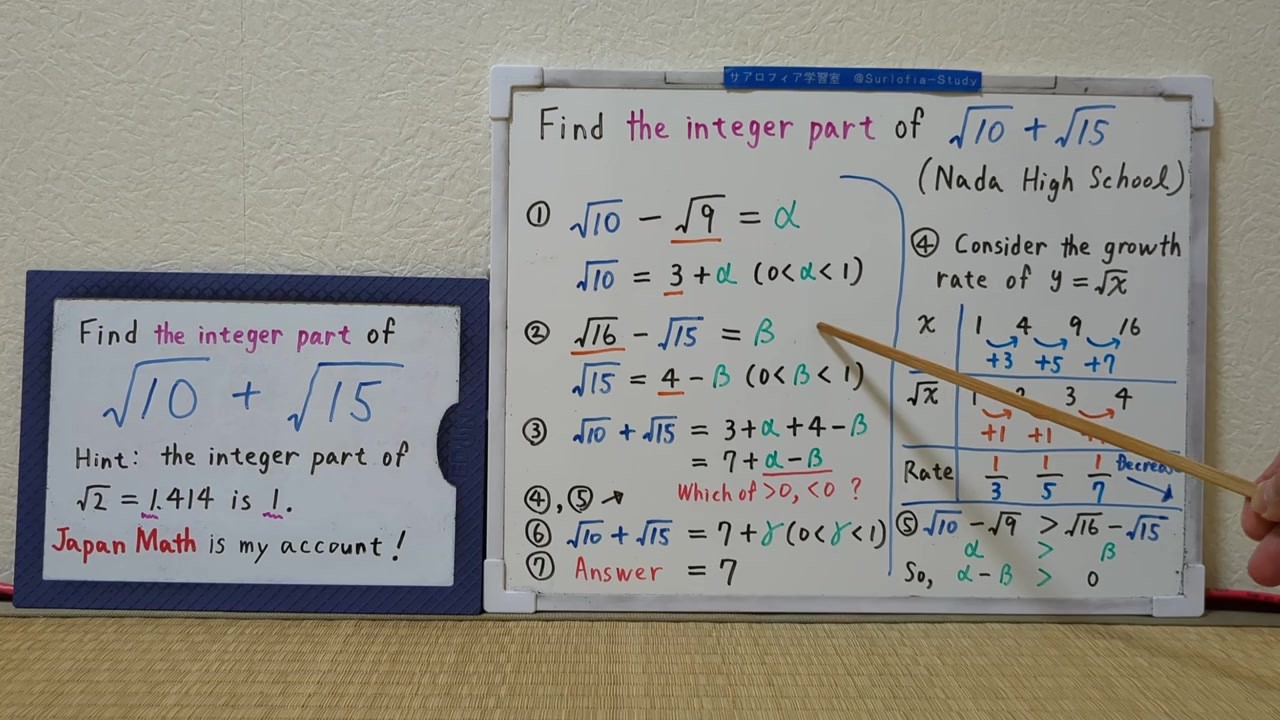 Find the integer part of
√10 + √15
Hint: the integer part of
√2 = 1.414 is 1.
Japan Math is my account!
サアロフィア学習室 @Surlofia-Study
Find the integer part of √10 + √15
(Nada High School)
① √10 - √9 = α
√10 = 3 + α (0<α<1)
② √16 - √15 = β
√15 = 4 - β (0<β<1)
③ √10 + √15 = 3+α+4-β
= 7+α-β
Which of >0, <0 ?
④, ⑤ →
⑥ √10 + √15 = 7+γ (0<γ<1)
⑦ Answer = 7
④ Consider the growth
rate of y = √x
x 1 4 9 16
+3 +5 +7
√x 1 2 3 4
+1 +1
Rate 1/3 1/5 1/7
⑤ √10 - √9 > √16 - √15
α > β
So, α - β > 0